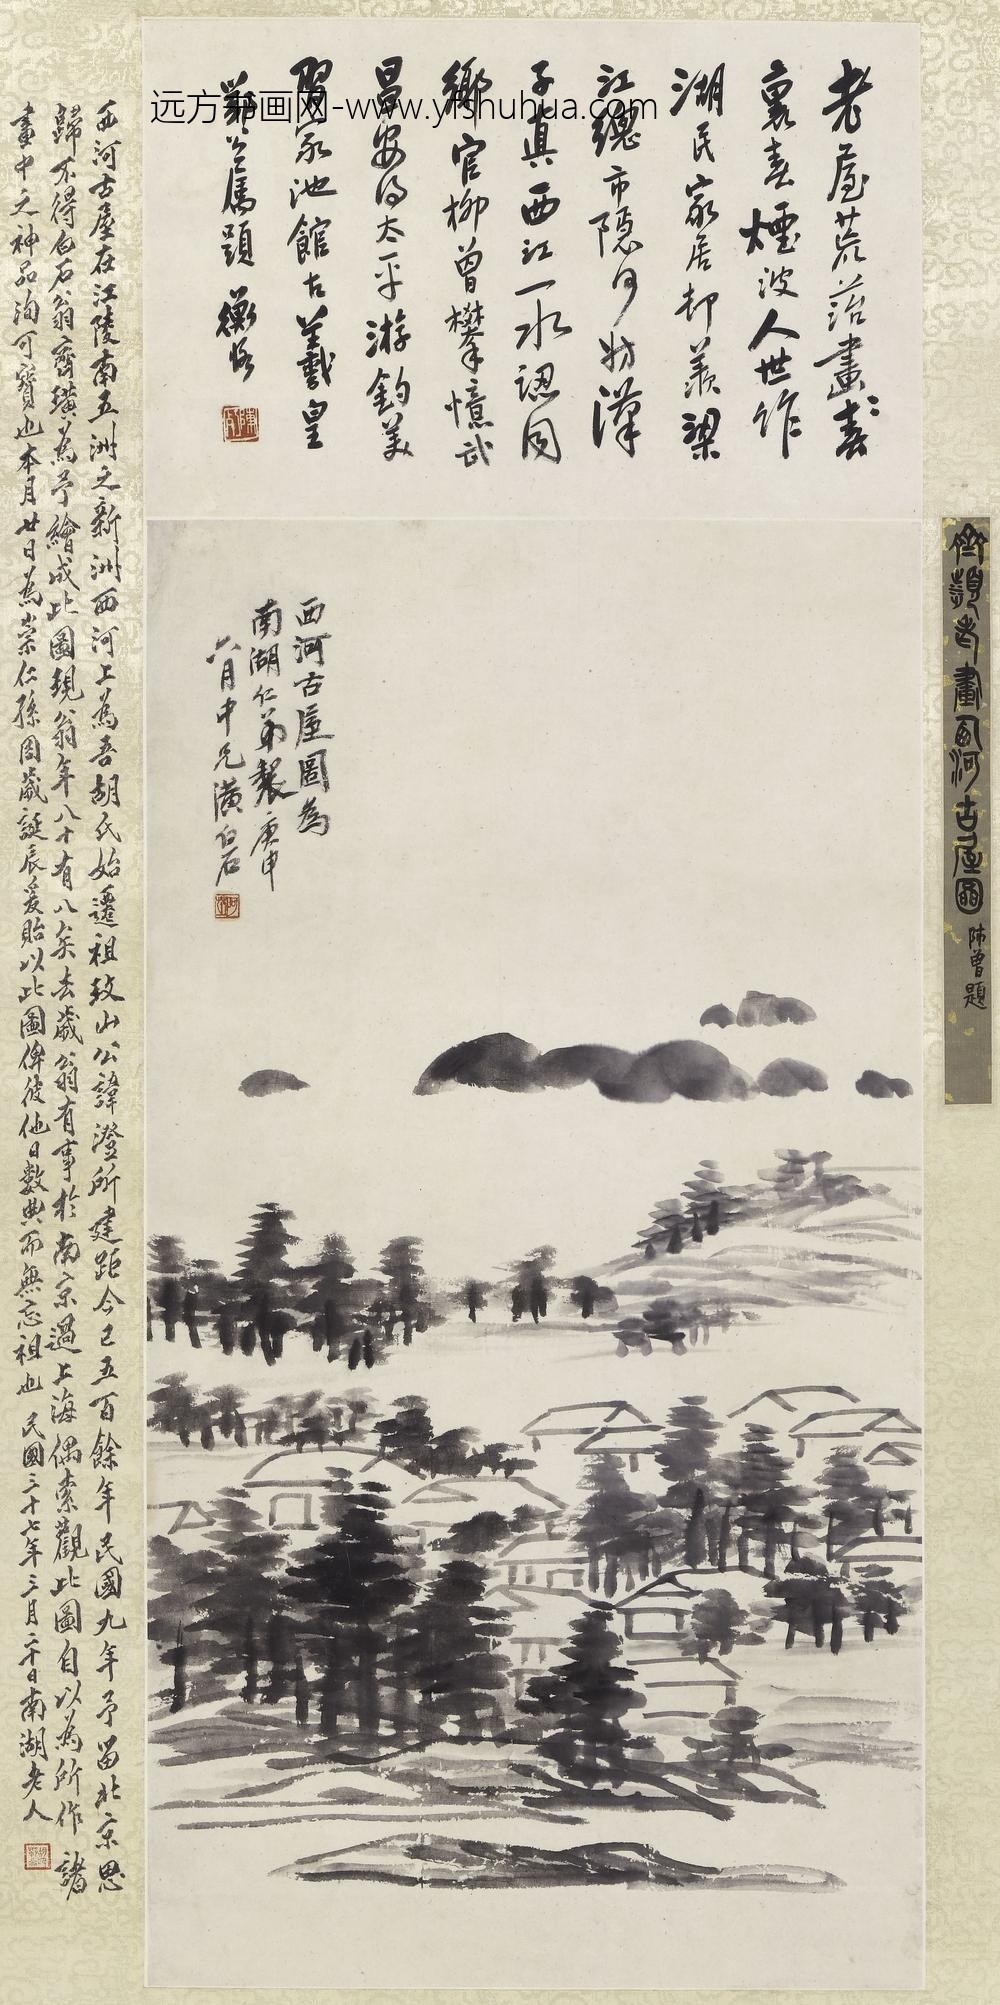 远方书画网-www.yfshuhua.com
老屋荒苔畫
裏春煙波人世作
湖民家居却羨梁
江總市隱何妨漢
子真西江一水認同
鄉官柳曾攀憶武
昌安得太平游釣美
習家池館古羲皇
題 衡恪
西河古屋圖為
南湖仁弟製庚申
六月中兄璜白石
齊瀕生畫西河古屋圖
師曾題
西河古屋在江陵南五洲之新洲西河上為吾胡氏始遷祖致山公諱澄所建距今已五百餘年民國九年予留北京思
歸不得白石翁齊璜為予繪成此圖現翁年八十有八矣去歲翁有事於南京過上海偶索觀此圖自以為所作諸
畫中之神品洵可寶也本月廿日為崇仁孫周歲誕辰爰貽以此圖俾彼他日數典而無忘祖也 民國三十七年三月二十日南湖老人